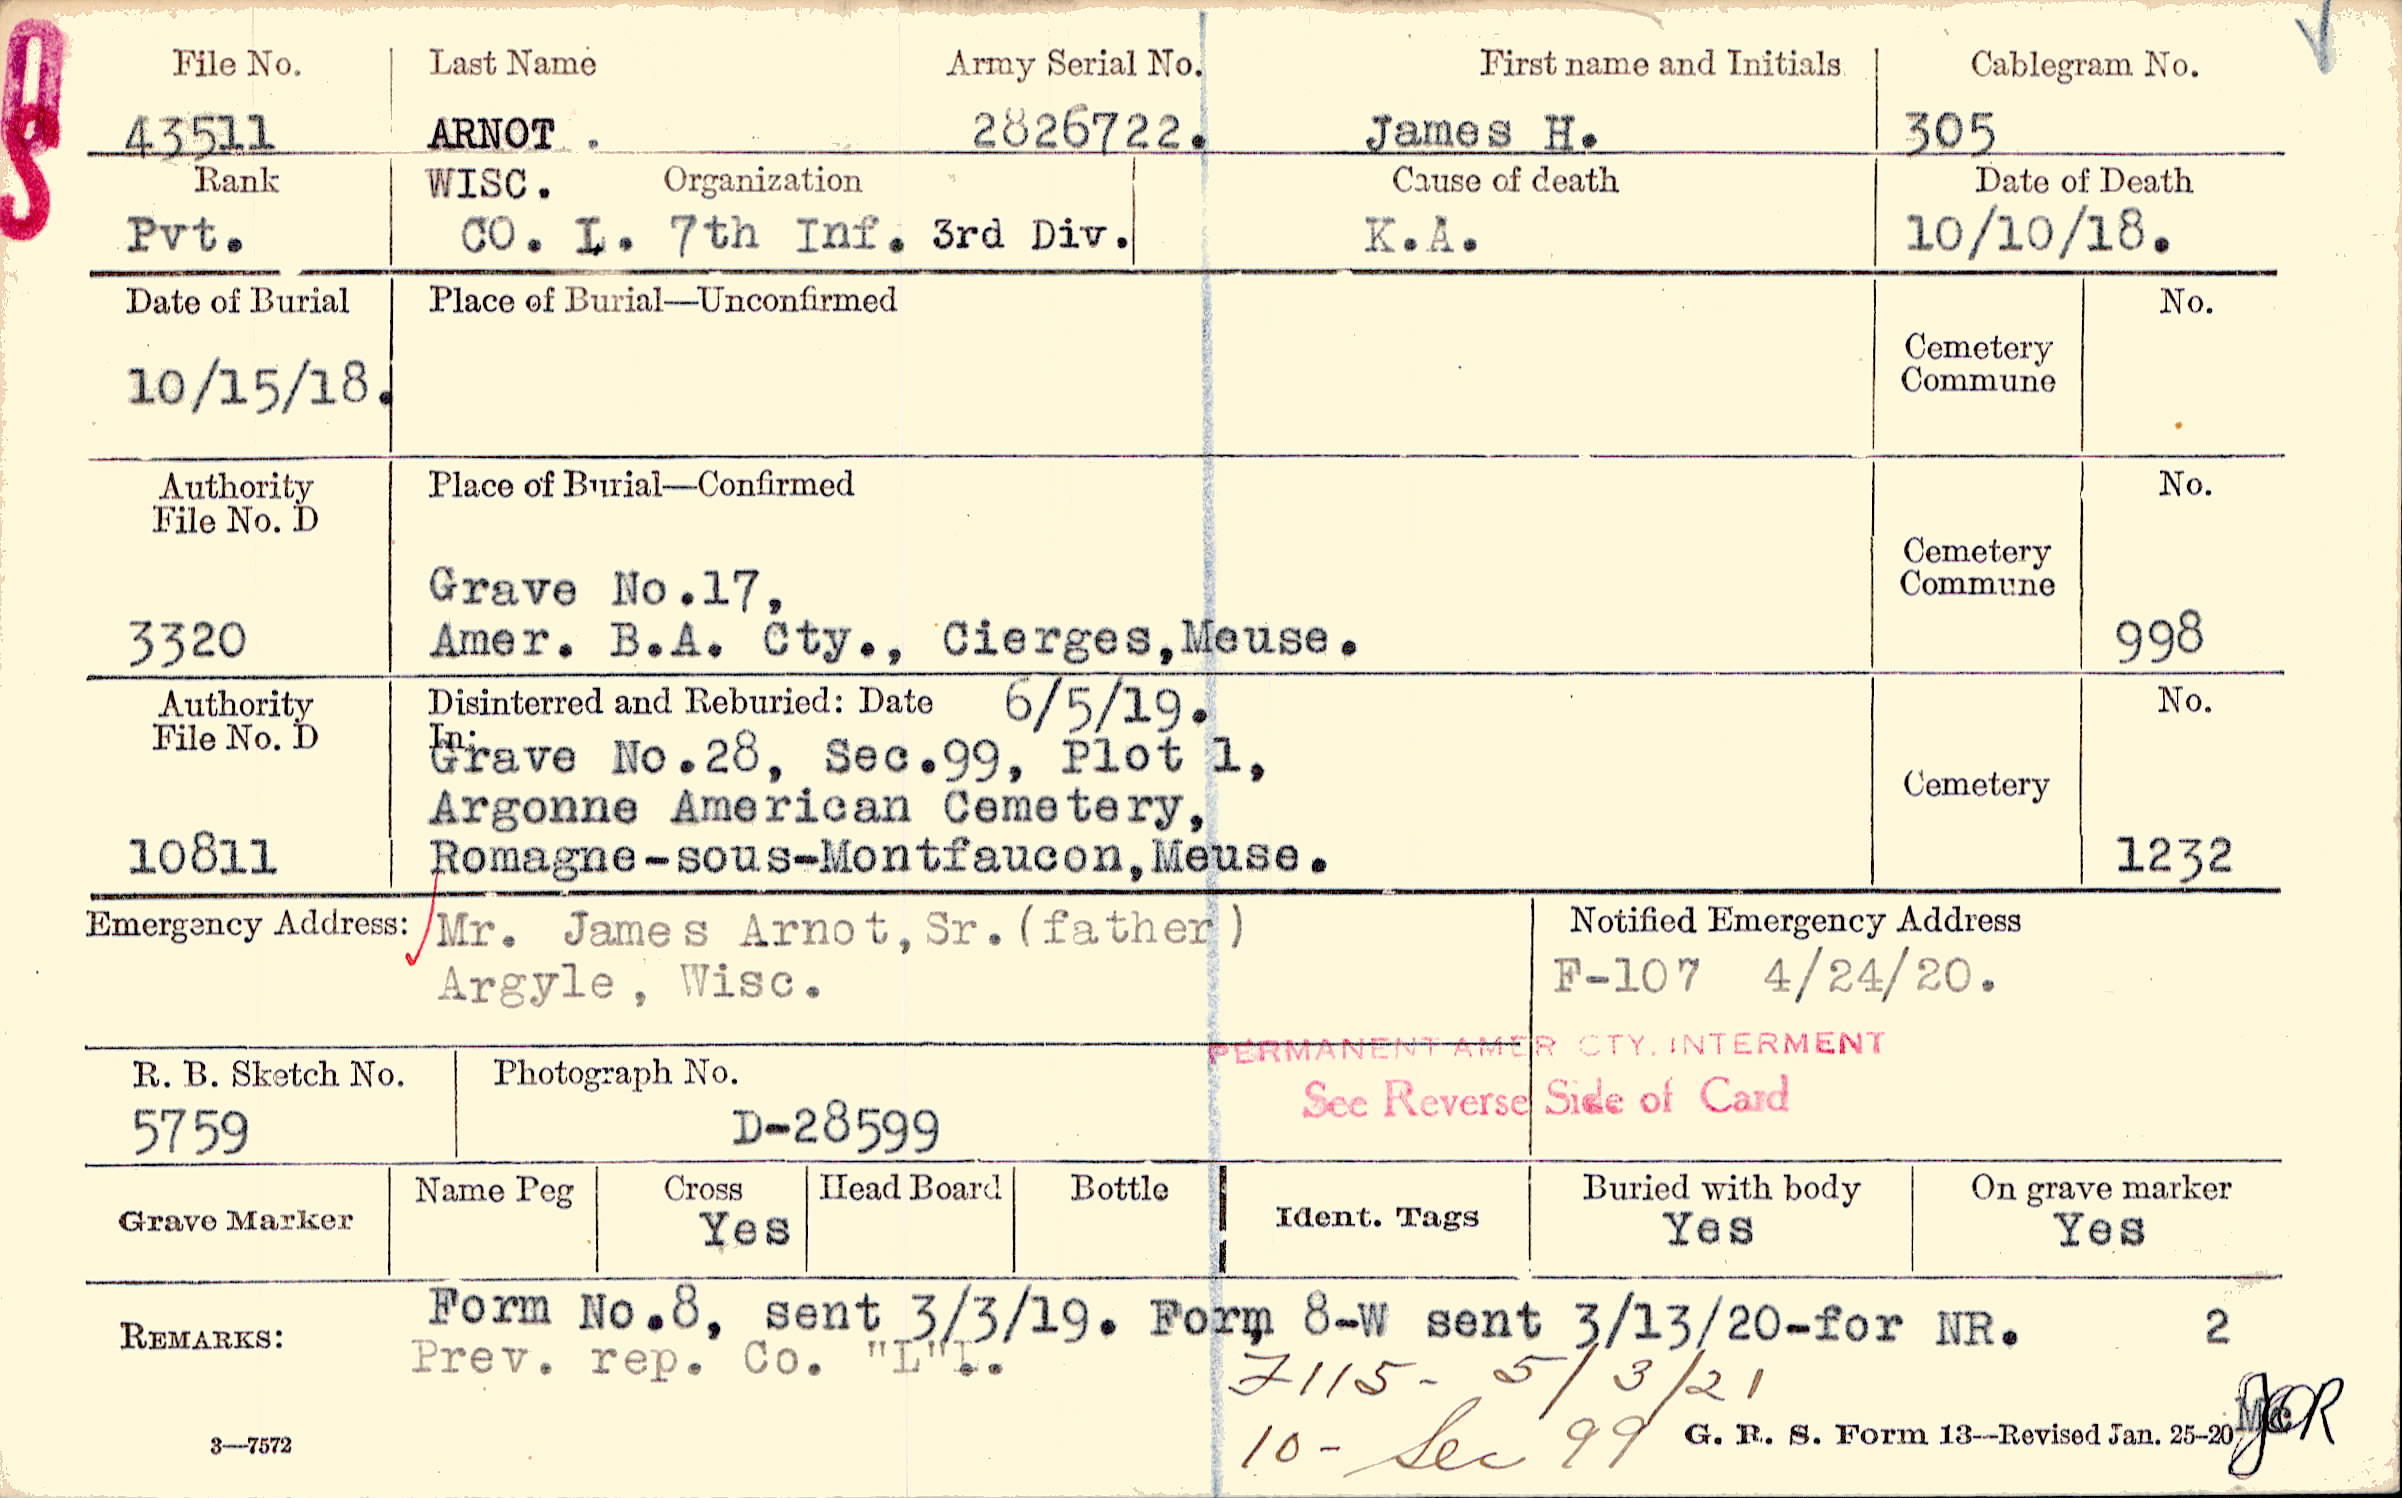 File No. Last Name Army Serial No. First name and Initials Cablegram No.
43511 ARNOT . 2826722. James H. 305
Rank WISC. Organization Cause of death Date of Death
Pvt. CO. L. 7th Inf. 3rd Div. K.A. 10/10/18.
Date of Burial Place of Burial—Unconfirmed No.
Cemetery
Commune
10/15/18.
Authority Place of Burial—Confirmed No.
File No. D
Cemetery
Commune
Grave No.17,
3320 Amer. B.A. Cty., Cierges,Meuse. 998
Authority Disinterred and Reburied: Date 6/5/19. No.
File No. D In:
Grave No.28, Sec.99, Plot 1,
Cemetery
Argonne American Cemetery,
10811 Romagne-sous-Montfaucon,Meuse. 1232
Emergency Address: Mr. James Arnot,Sr.(father) Notified Emergency Address
Argyle, Wisc. F-107 4/24/20.
PERMANENT AMER CTY. INTERMENT
R. B. Sketch No. Photograph No. See Reverse Side of Card
5759 D-28599
Grave Marker Name Peg Cross Head Board Bottle Ident. Tags Buried with body On grave marker
Yes Yes Yes
REMARKS: Form No.8, sent 3/3/19. Form 8-W sent 3/13/20-for NR. 2
Prev. rep. Co. "L"I.
7115- 5/3/21
10- Sec 99
3—7572 G. R. S. Form 13—Revised Jan. 25-20